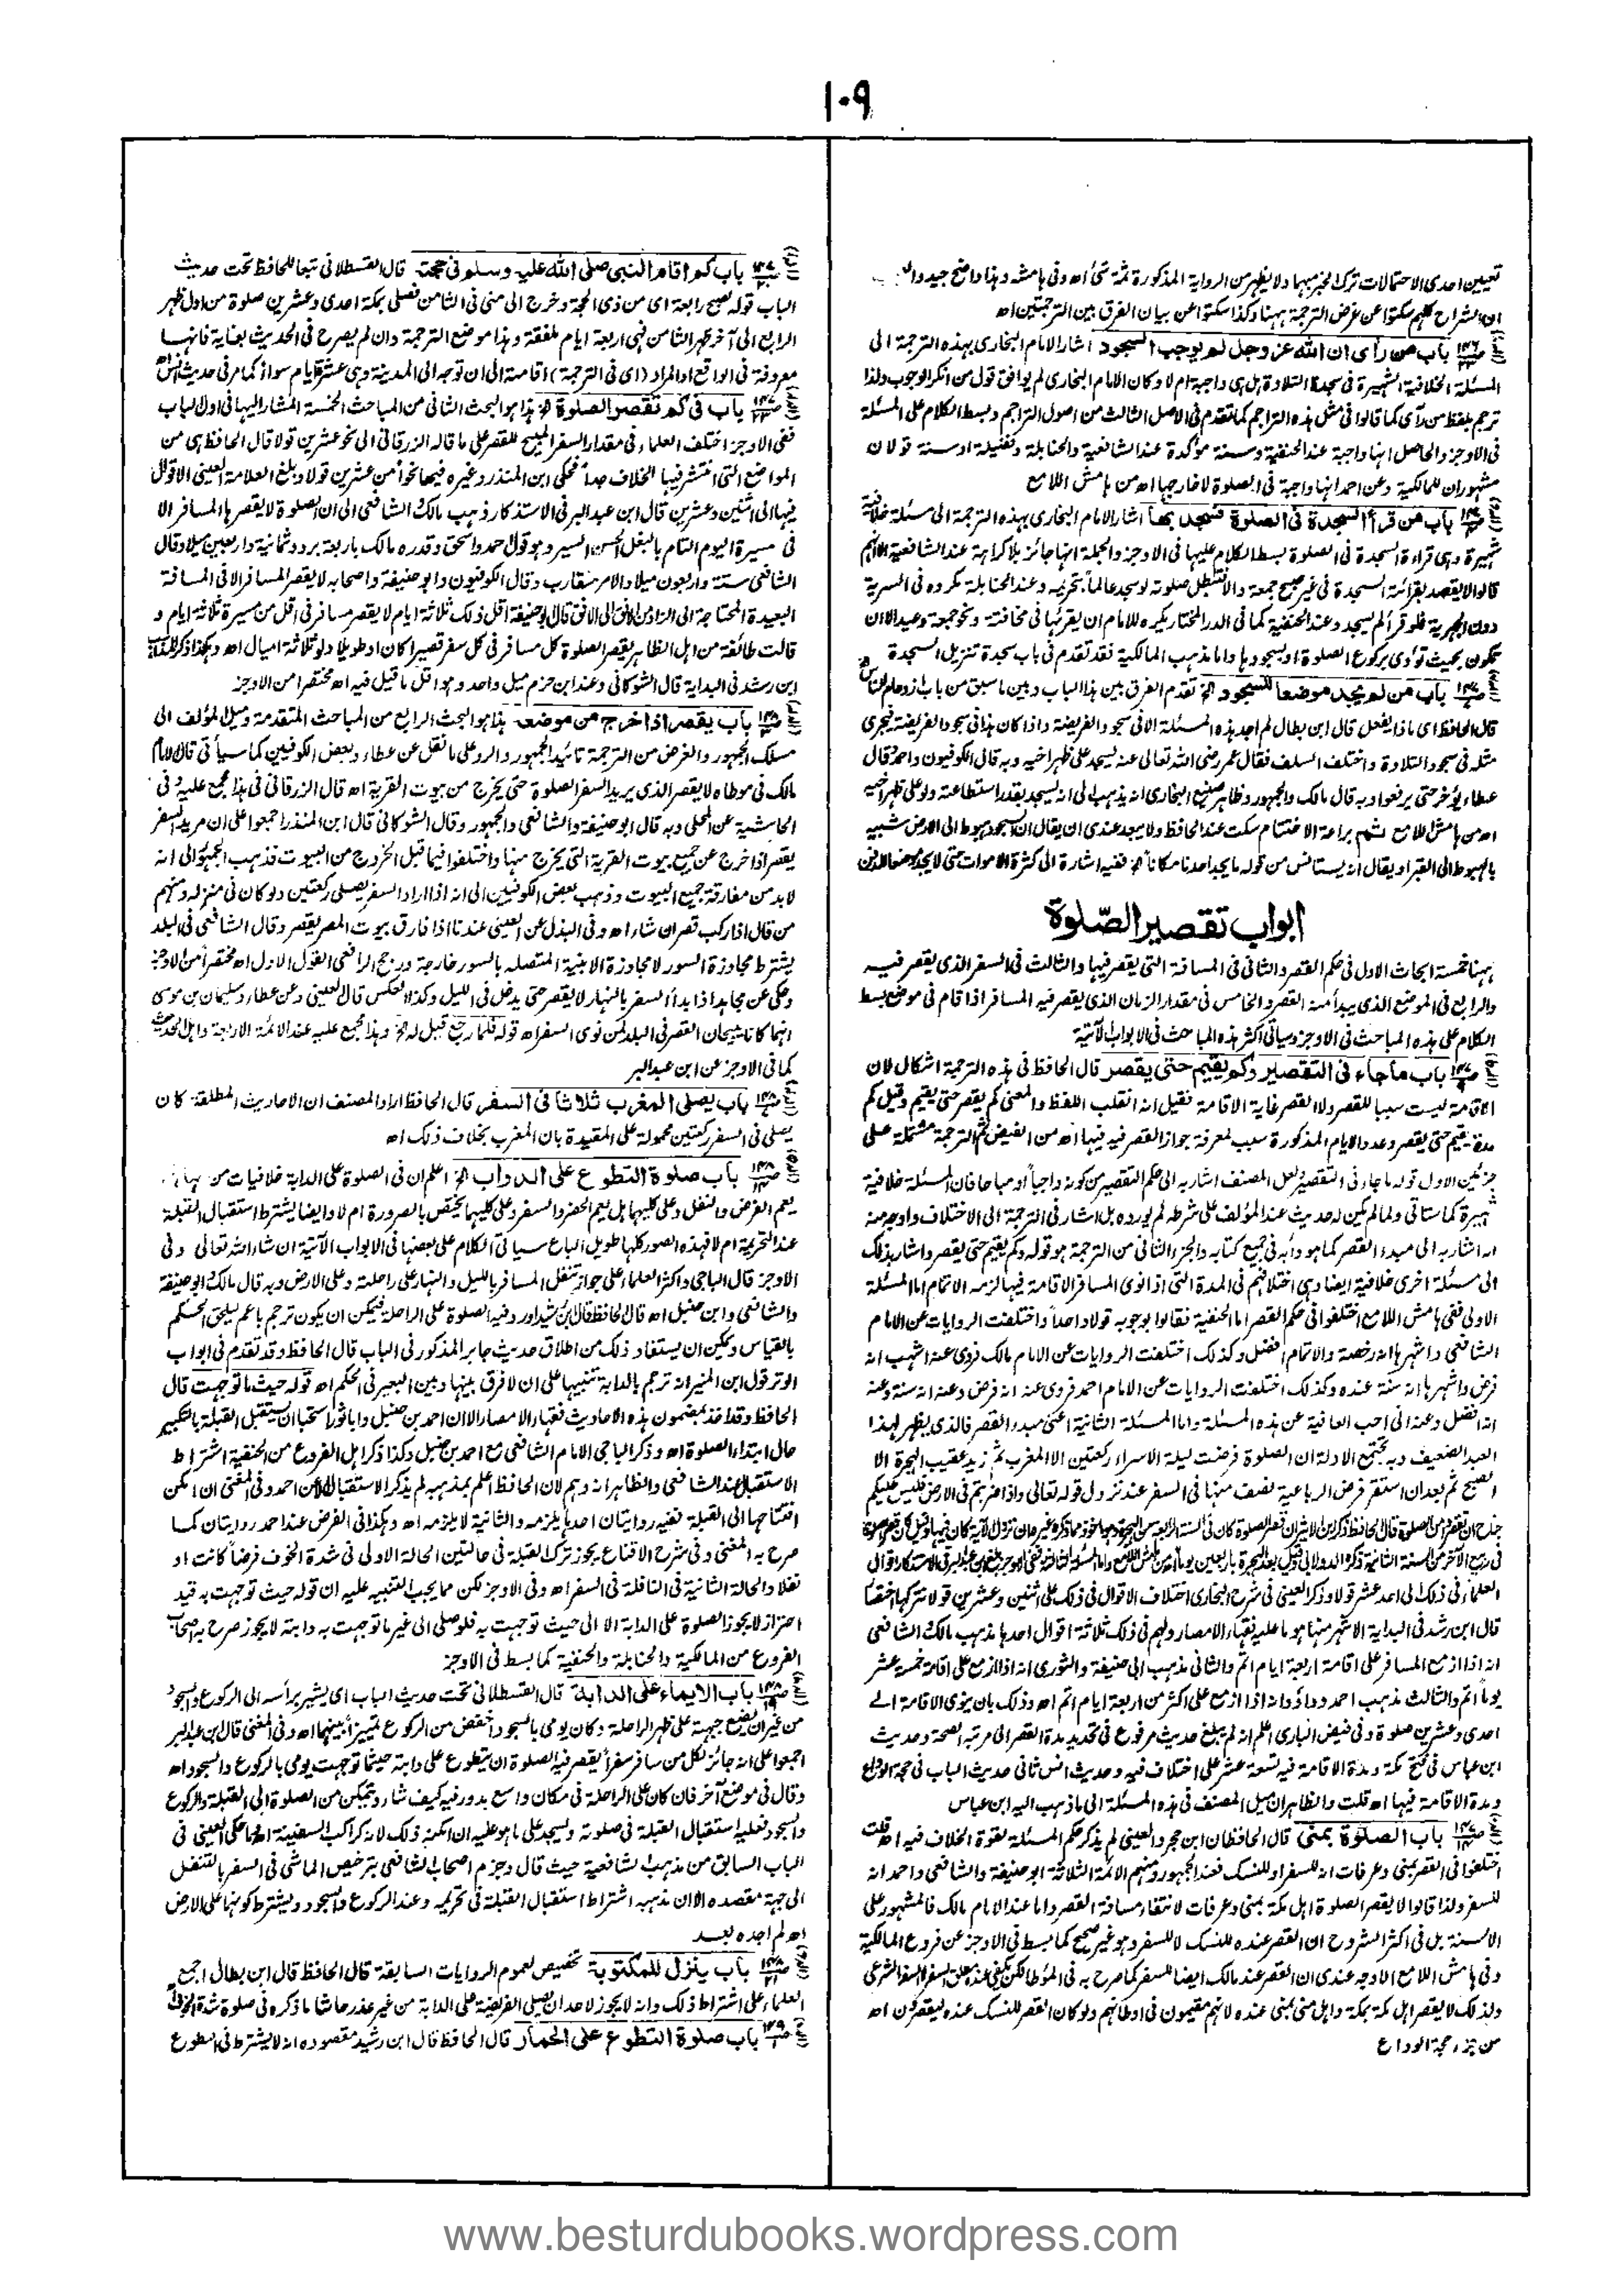 ١٠٩
تعيين احدى الاحتمالات ترك الجزم بها ولا يظهر من الرواية المذكورة ثمة شئ اه وفى هامشه وهذا واضح جيد
ان الشراح كلهم سكتوا عن غرض الترجمة ههنا وكذا سكتوا عن بيان الفرق بين الترجمتين اه
باب من رأى ان الله عز وجل لم يوجب السجود اشار الامام البخارى بهذه الترجمة الى
المسئلة الخلافية الشهيرة فى سجدة التلاوة هل هى واجبة ام لا وكان الامام البخارى لم يوافق قول من انكر الوجوب ولذا
ترجم بلفظ من رأى كما قالوا فى مثل هذه التراجم كما تقدم فى الاصل الثالث من اصول التراجم وبسط الكلام على المسئلة
فى الاوجز والحاصل انها واجبة عند الحنفية وسنة مؤكدة عند الشافعية والحنابلة وفضيلة او سنة قولان
مشهوران للمالكية وعن احمد انها واجبة فى الصلوة لا خارجها اه من هامش اللامع
باب من قرأ السجدة فى الصلوة فسجد بها اشار الامام البخارى بهذه الترجمة الى مسئلة خلافية
شهيرة وهى قراءة السجدة فى الصلوة بسط الكلام عليها فى الاوجز والجملة انها جائز بلا كراهة عند الشافعية الا انهم
قالوا لا يقصد بقرائته السجدة فى غير صبح جمعة والا فتبطل صلوته لو سجد عالما بتحريمه وعند الحنابلة مكروه فى السرية
دون الجهرية فلو قرأ لم يسجد وعند الحنفية كما فى الدر المختار يكره للامام ان يقرئها فى مخافتة ونحو جمعة وعيد الا ان
تكون بحيث تؤدى بركوع الصلوة او سجودها واما مذهب المالكية فقد تقدم فى باب سجدة تنزيل السجدة
باب من لم يجد موضعا للسجود الخ تقدم الفرق بين هذا الباب وبين ما سبق من باب ازدحام الناس
قال الحافظ اى ماذا يفعل قال ابن بطال لم اجد هذه المسئلة الا فى سجود الفريضة واذا كان هذا فى سجود الفريضة فيجرى
مثله فى سجود التلاوة واختلف السلف فقال عمر رضى الله تعالى عنه يسجد على ظهر اخيه وبه قال الكوفيون واحمد وقال
عطاء يؤخر حتى يرفعوا وبه قال مالك والجمهور وظاهر صنيع البخارى انه يذهب الى انه يسجد بقدر استطاعته ولو على ظهر اخيه
اه من هامش اللامع ثم براعة الاختتام سكت عند الحافظ ولا يبعد عندى ان يقال ان السجود هبوط الى الارض شبيه
بالهبوط الى القبر او يقال انه يستانس من قوله ما يجد احدنا مكانا الخ ففيه اشارة الى كثرة الاموات حتى لا يجد موضعا للدفن
ابواب تقصير الصّلوة
ههنا خمسة ابحاث الاول فى حكم القصر والثانى فى المسافة التى يقصر فيها والثالث فى السفر الذى يقصر فيه
والرابع فى الموضع الذى يبدأ منه القصر والخامس فى مقدار الزمان الذى يقصر فيه المسافر اذا قام فى موضع بسط
الكلام على هذه المباحث فى الاوجز وسياتى اكثر هذه المباحث فى الابواب الآتية
باب ماجاء فى التقصير وكم يقيم حتى يقصر قال الحافظ فى هذه الترجمة اشكال لان
الاقامة ليست سببا للقصر ولا القصر غاية الاقامة فقيل انه انقلب اللفظ والمعنى كم يقصر حتى يقيم وقيل كم
مدة يقيم حتى يقصر وعدد الايام المذكورة سبب لمعرفة جواز القصر فيه فيها اه من الفيض ثم الترجمة مشتملة على
جزئين الاول قوله ماجاء فى التقصير لعل المصنف اشار به الى حكم التقصير من كونه واجبا او مباحا فان المسئلة خلافية
شهيرة كما ستاتى ولما لم يكن له حديث عند المؤلف على شرطه لم يورده بل اشار فى الترجمة الى الاختلاف واوجه منه
انه اشار به الى مبدء القصر كما هو دأبه فى جميع كتابه والجزء الثانى من الترجمة هو قوله وكم يقيم حتى يقصر واشار بذلك
الى مسئلة اخرى خلافية ايضا وهى اختلافهم فى المدة التى اذا نوى المسافر الاقامة فيها لزمه الاتمام اما المسئلة
الاولى ففى هامش اللامع اختلفوا فى حكم القصر اما الحنفية فقالوا بوجوبه قولا واحدا واختلفت الروايات عن الامام
الشافعى واشهرها انه رخصة والاتمام افضل وكذلك اختلفت الروايات عن الامام مالك فروى عنه اشهب انه
فرض واشهرها انه سنة عنده وكذلك اختلفت الروايات عن الامام احمد فروى عنه انه فرض وعنه انه سنة وعنه
انه افضل وعنه انى احب العافية عن هذه المسئلة واما المسئلة الثانية اعنى مبدء القصر فالذى يظهر لهذا
العبد الضعيف وبه تجتمع الادلة ان الصلوة فرضت ليلة الاسراء ركعتين الا المغرب ثم زيد عقيب الهجرة الا
الصبح ثم بعد ان استقر فرض الرباعية نصف منها فى السفر عند نزول قوله تعالى واذا ضربتم فى الارض فليس عليكم
جناح ان تقصروا من الصلوة
العلماء فى ذلك الى احد عشر قولا وذكر العينى فى شرح البخارى اختلاف الاقوال فى ذلك على اثنين وعشرين قولا
قال ابن رشد فى البداية الاشهر منها هو ما عليه فقهاء الامصار ولهم فى ذلك ثلاثة اقوال احدها مذهب مالك والشافعى
انه اذا ازمع المسافر على اقامة اربعة ايام اتم والثانى مذهب ابى حنيفة والثورى انه اذا ازمع على اقامة خمسة عشر
يوما اتم والثالث مذهب احمد وداؤد انه اذا ازمع على اكثر من اربعة ايام اتم اه وذلك بان ينوى الاقامة الى
احدى وعشرين صلوة وفى فيض البارى اعلم انه لم يبلغ حديث مرفوع فى تحديد مدة القصر الى مرتبة الصحة وحديث
ابن عباس فى فتح مكة ومدة الاقامة فيه تسعة عشر على اختلاف فيه وحديث انس ثانى حديث الباب فى حجة الوداع
ومدة الاقامة فيها اه قلت والظاهر ان ميل المصنف فى هذه المسئلة الى ما ذهب اليه ابن عباس
باب الصلوة بمنى قال الحافظان ابن حجر والعينى لم يذكر حكم المسئلة لقوة الخلاف فيه اه قلت
اختلفوا فى القصر بمنى وعرفات انه للسفر او للنسك فعند الجمهور ومنهم الائمة الثلاثة ابو حنيفة والشافعى واحمد انه
للسفر ولذا قالوا لا يقصر الصلوة اهل مكة بمنى وعرفات لانتفاء مسافة القصر واما عند الامام مالك فالمشهور على
الالسنة بل فى اكثر الشروح ان القصر عنده للنسك لا للسفر وهو غير صحيح كما بسط فى الاوجز عن فروع المالكية
وفى هامش اللامع الاوجه عندى ان القصر عند مالك ايضا للسفر كما صرح به فى المؤطا
ولذلك لا يقصر اهل مكة بمكة واهل منى بمنى عنده لانهم مقيمون فى اوطانهم ولو كان القصر للنسك عنده ليقصرون اه
من جزء حجة الوداع
باب كم اقام النبى صلى الله عليه وسلم فى حجته قال القسطلانى تبعا للحافظ تحت حديث
الباب قوله لصبح رابعة اى من ذى الحجة وخرج الى منى فى الثامن فصلى بمكة احدى وعشرين صلوة من اول ظهر
الرابع الى آخر ظهر الثامن فهى اربعة ايام ملفقة وهذا موضع الترجمة وان لم يصرح فى الحديث بغاية فانها
معروفة فى الواقع او المراد (اى فى الترجمة) اقامته الى ان توجه الى المدينة وهى عشرة ايام سواء كما مر فى حديث انس اه
باب فى كم تقصر الصلوة الخ هذا هو البحث الثانى من المباحث الخمسة المشار اليها فى اول الباب
ففى الاوجز اختلف العلماء فى مقدار السفر المبيح للقصر على ما قاله الزرقانى الى نحو عشرين قولا قال الحافظ هى من
المواضع التى انتشر فيها الخلاف جدا فحكى ابن المنذر وغيره فيها نحوا من عشرين قولا وبلغ العلامة العينى الاقوال
فيها الى اثنين وعشرين قال ابن عبد البر فى الاستذكار ذهب مالك والشافعى الى ان الصلوة لا يقصرها المسافر الا
فى مسيرة اليوم التام بالبغل الحسن السير وهو قول احمد واسحق وقدره مالك باربعة برد وثمانية واربعين ميلا وقال
الشافعى ستة واربعون ميلا والامر متقارب وقال الكوفيون وابو حنيفة واصحابه لا يقصر المسافر الا فى المسافة
البعيدة المحتاجة الى الزاد من الافق الى الافق قال ابو حنيفة اقل ذلك ثلاثة ايام لا يقصر مسافر فى اقل من مسيرة ثلاثة ايام و
قالت طائفة من اهل الظاهر يقصر الصلوة كل مسافر فى كل سفر قصيرا كان او طويلا ولو ثلاثة اميال اه وهكذا ذكر المذاهب
ابن رشد فى البداية قال الشوكانى وعند ابن حزم ميل واحد وهو اقل ما قيل فيه اه مختصرا من الاوجز
باب يقصر اذا خرج من موضعه هذا هو البحث الرابع من المباحث المتقدمة وميل المؤلف الى
مسلك الجمهور والغرض من الترجمة تائيد الجمهور والرد على ما نقل عن عطاء وبعض الكوفيين كما سيأتى قال الامام
مالك فى موطاه لا يقصر الذى يريد السفر الصلوة حتى يخرج من بيوت القرية اه قال الزرقانى فى هذا مجمع عليه وفى
الحاشية عن المحلى وبه قال ابو حنيفة والشافعى والجمهور وقال الشوكانى قال ابن المنذر اجمعوا على ان مريد السفر
يقصر اذا خرج عن جميع بيوت القرية التى يخرج منها واختلفوا فيما قبل الخروج من البيوت فذهب الجمهور الى انه
لا بد من مفارقة جميع البيوت وذهب بعض الكوفيين الى انه اذا اراد السفر يصلى ركعتين ولو كان فى منزله ومنهم
من قال اذا ركب قصر ان شاء اه وفى البذل عن العينى عندنا اذا فارق بيوت المصر يقصر وقال الشافعى فى البلد
يشترط مجاوزة السور لا مجاوزة الابنية المتصلة بالسور خارجة ورجح الرافعى القول الاول اه مختصرا من الاوجز
وحكى عن مجاهد اذا بدأ السفر بالنهار لا يقصر حتى يدخل فى الليل وكذا العكس قال العينى وعن عطاء وسليمان بن موسى
انهما كانا يبيحان القصر فى البلد لمن نوى السفر اه قوله فلما رجع قيل له الخ وهذا مجمع عليه عند الائمة الاربعة واهل الحديث
كما فى الاوجز عن ابن عبد البر
باب يصلى المغرب ثلاثا فى السفر قال الحافظ اراد المصنف ان الاحاديث المطلقة كان
يصلى فى السفر ركعتين محمولة على المقيدة بان المغرب بخلاف ذلك اه
باب صلوة التطوع على الدواب الخ اعلم ان فى الصلوة على الدابة خلافيات من
يعم الفرض والنفل وعلى كليهما هل يعم الحضر والسفر وعلى كليهما يختص بالضرورة ام لا وايضا يشترط استقبال القبلة
عند التحريمة ام لا فهذه الصور كلها طويل الباع سياتى الكلام على بعضها فى الابواب الآتية ان شاء الله تعالى وفى
الاوجز قال الباجى واكثر العلماء على جواز تنفل المسافر بالليل والنهار على راحلته وعلى الارض وبه قال مالك وابو حنيفة
والشافعى وابن حنبل اه قال الحافظ قال ابن رشيد اورد فيه الصلوة على الراحلة فيمكن ان يكون ترجم باعم ليلحق الحكم
بالقياس ويمكن ان يستفاد ذلك من اطلاق حديث جابر المذكور فى الباب قال الحافظ وقد تقدم فى ابواب
الوتر قول ابن المنير انه ترجم بالدابة تنبيها على ان لا فرق بينها وبين البعير فى الحكم اه قوله حيث ما توجهت قال
الحافظ وقد اخذ بمضمون هذه الاحاديث فقهاء الامصار الا ان احمد بن حنبل وابا ثور استحبا ان يستقبل القبلة بالتكبير
حال ابتداء الصلوة اه وذكر الباجى الامام الشافعى مع احمد بن حنبل وكذا ذكر اهل الفروع من الحنفية اشتراط
الاستقبال عند الشافعى والظاهر انه وهم لان الحافظ اعلم بمذهبه لم يذكر الاستقبال الا عن احمد وفى المغنى ان امكن
افتتاحها الى القبلة ففيه روايتان احدها يلزمه والثانية لا يلزمه اه وهكذا فى الفرض عند احمد روايتان كما
صرح به المغنى وفى شرح الاقناع يجوز ترك القبلة فى حالتين الحالة الاولى فى شدة الخوف فرضا كانت او
نفلا والحالة الثانية فى النافلة فى السفر اه وفى الاوجز لكن مما يجب التنبيه عليه ان قوله حيث توجهت به قيد
احتراز لا يجوز الصلوة على الدابة الا الى حيث توجهت به فلو صلى الى غير ما توجهت به دابته لا يجوز صرح به اصحاب
الفروع من المالكية والحنابلة والحنفية كما بسط فى الاوجز
باب الايماء على الدابة قال القسطلانى تحت حديث الباب اى يشير برأسه الى الركوع والسجود
من غير ان يضع جبهته على ظهر الراحلة وكان يومى بالسجود اخفض من الركوع تمييزا بينهما اه وفى المغنى قال ابن عبد البر
اجمعوا على انه جائز لكل من سافر سفرا يقصر فيه الصلوة ان يتطوع على دابته حيثما توجهت يومى بالركوع والسجود اه
وقال فى موضع آخر فان كان على الراحلة فى مكان واسع يدور فيه كيف شاء ويتمكن من الصلوة الى القبلة والركوع
والسجود فعليه استقبال القبلة فى صلوته ويسجد على ما هو عليه ان امكنه ذلك لانه كراكب السفينة اه وما حكى العينى فى
الباب السابق من مذهب الشافعية حيث قال وجزم اصحاب الشافعى بترخيص الماشى فى السفر بالتنفل
الى جهة مقصده الا ان مذهبهم اشتراط استقبال القبلة فى تحريمه وعند الركوع والسجود ويشترط كونها على الارض
اه لم اجده بعد
باب ينزل للمكتوبة تخصيص لعموم الروايات السابقة قال الحافظ قال ابن بطال اجمع
العلماء على اشتراط ذلك وانه لا يجوز لاحد ان يصلى الفريضة على الدابة من غير عذر حاشا ما ذكره فى صلوة شدة الخوف
باب صلوة التطوع على الحمار قال الحافظ قال ابن رشيد مقصوده انه لا يشترط فى التطوع
www.besturdubooks.wordpress.com